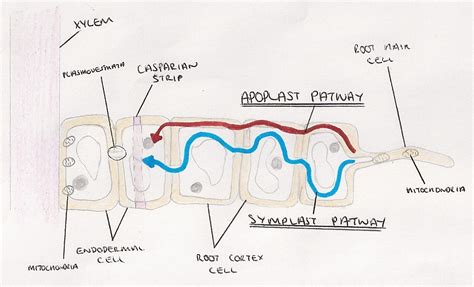 XYLEM
PLASMODESMATA
CASPARIAN
STRIP
ROOT HAIR
CELL
APOPLAST PATWAY
SYMPLAST PATWAY
MITOCHONDRIA
ENDODERMAL
CELL
ROOT CORTEX
CELL
MITOCHONDRIA